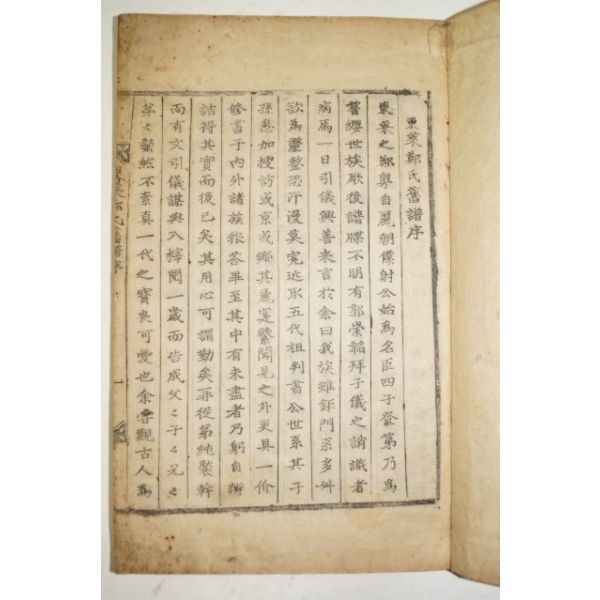 東萊鄭氏舊譜序
東萊之鄭粵自麗朝僕射公始爲名臣四子登第乃爲
簪纓世族厥後譜牒不明有郭崇韜拜子儀之誚識者
病焉一日引儀興善来言於余曰我族雖鉅門系多舛
欲爲釐整恐汗漫莫究近取五代祖判書公世系其子
孫悉加搜訪或京或鄕其麗寔繁聞見之外更具一价
修書于內外諸族報答畢至其中有未盡者乃躬自辨
詰得其實而後已矣其用心可謂勤矣再從弟純裝幹
而有文引儀謀與入梓閱一歲而告成父〻子〻兄〻
弟〻粲然不紊真一代之寶良可愛也余嘗觀古人爲
東萊鄭氏舊譜序
一